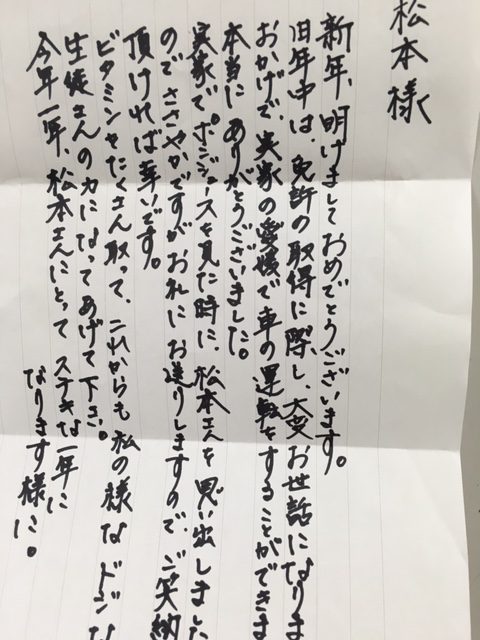 松本様
新年、明けましておめでとうございます。
旧年中は、免許の取得に際し、大変お世話になりま
おかげで、実家の愛媛で車の運転をすることができま
本当にありがとうございました。
実家で。ポンジュースを見た時に、松本さんを思い出しました
のでささやかですがお礼にお送りしますので、ご笑納
頂ければ幸いです。
ビタミンをたくさん取って、これからも私の様なドジな
生徒さんの力になってあげて下さい。
今年一年、松本さんにとってステキな一年に
なります様に。